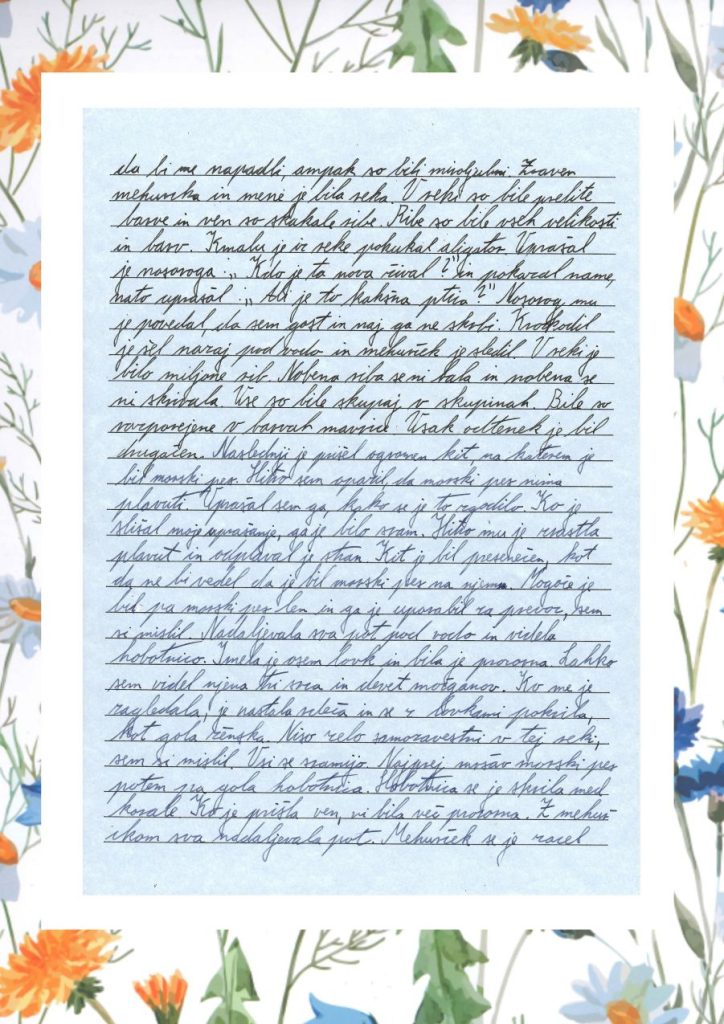 da bi me napadli, ampak so bili miroljubni. Zraven
mehurčka in mene je bila reka. V reki so bile prelite
barve in ven so skakale ribe. Ribe so bile vseh velikosti
in barv. Kmalu je iz reke pokukal aligator. Vprašal
je nosoroga: „ Kdo je ta nova žival?" in pokazal name,
nato vprašal: „ Ali je to kakšna ptica?" Nosorog mu
je povedal, da sem gost in naj ga ne skrbi. Krokodil
je šel nazaj pod vodo in mehurček je sledil. V reki je
bilo miljone rib. Nobena riba se ni bala in nobena se
ni skrivala. Vse so bile skupaj v skupinah. Bile so
razporejene v barvah mavrice. Vsak odtenek je bil
drugačen. Naslednji je prišel ogromen kit na katerem je
bil morski pes. Hitro sem opazil, da morski pes nima
plavuti. Vprašal sem ga, kako se je to zgodilo. Ko je
slišal moje vprašanje, ga je bilo sram. Hitro mu je zrastla
plavut in odplaval je stran. Kit je bil presenečen, kot
da ne bi vedel da je bil morski pes na njemu. Mogoče je
bil pa morski pes len in ga je uporabil za prevoz, sem
si mislil. Nadaljevala sva pot pod vodo in videla
hobotnico. Imela je osem lovk in bila je prozorna. Lahko
sem videl njena tri srca in devet možganov. Ko me je
zagledala, je nastala rdeča in se z lovkami pokrila,
kot gola ženska. Niso zelo samozavestni v tej reki,
sem si mislil. Vsi se sramijo. Najprej morski pes
potem pa gola hobotnica. Hobotnica se je skrila med
korale. Ko je prišla ven, ni bila več prozorna. Z mehur-
čkom sva nadaljevala pot. Mehurček se je začel